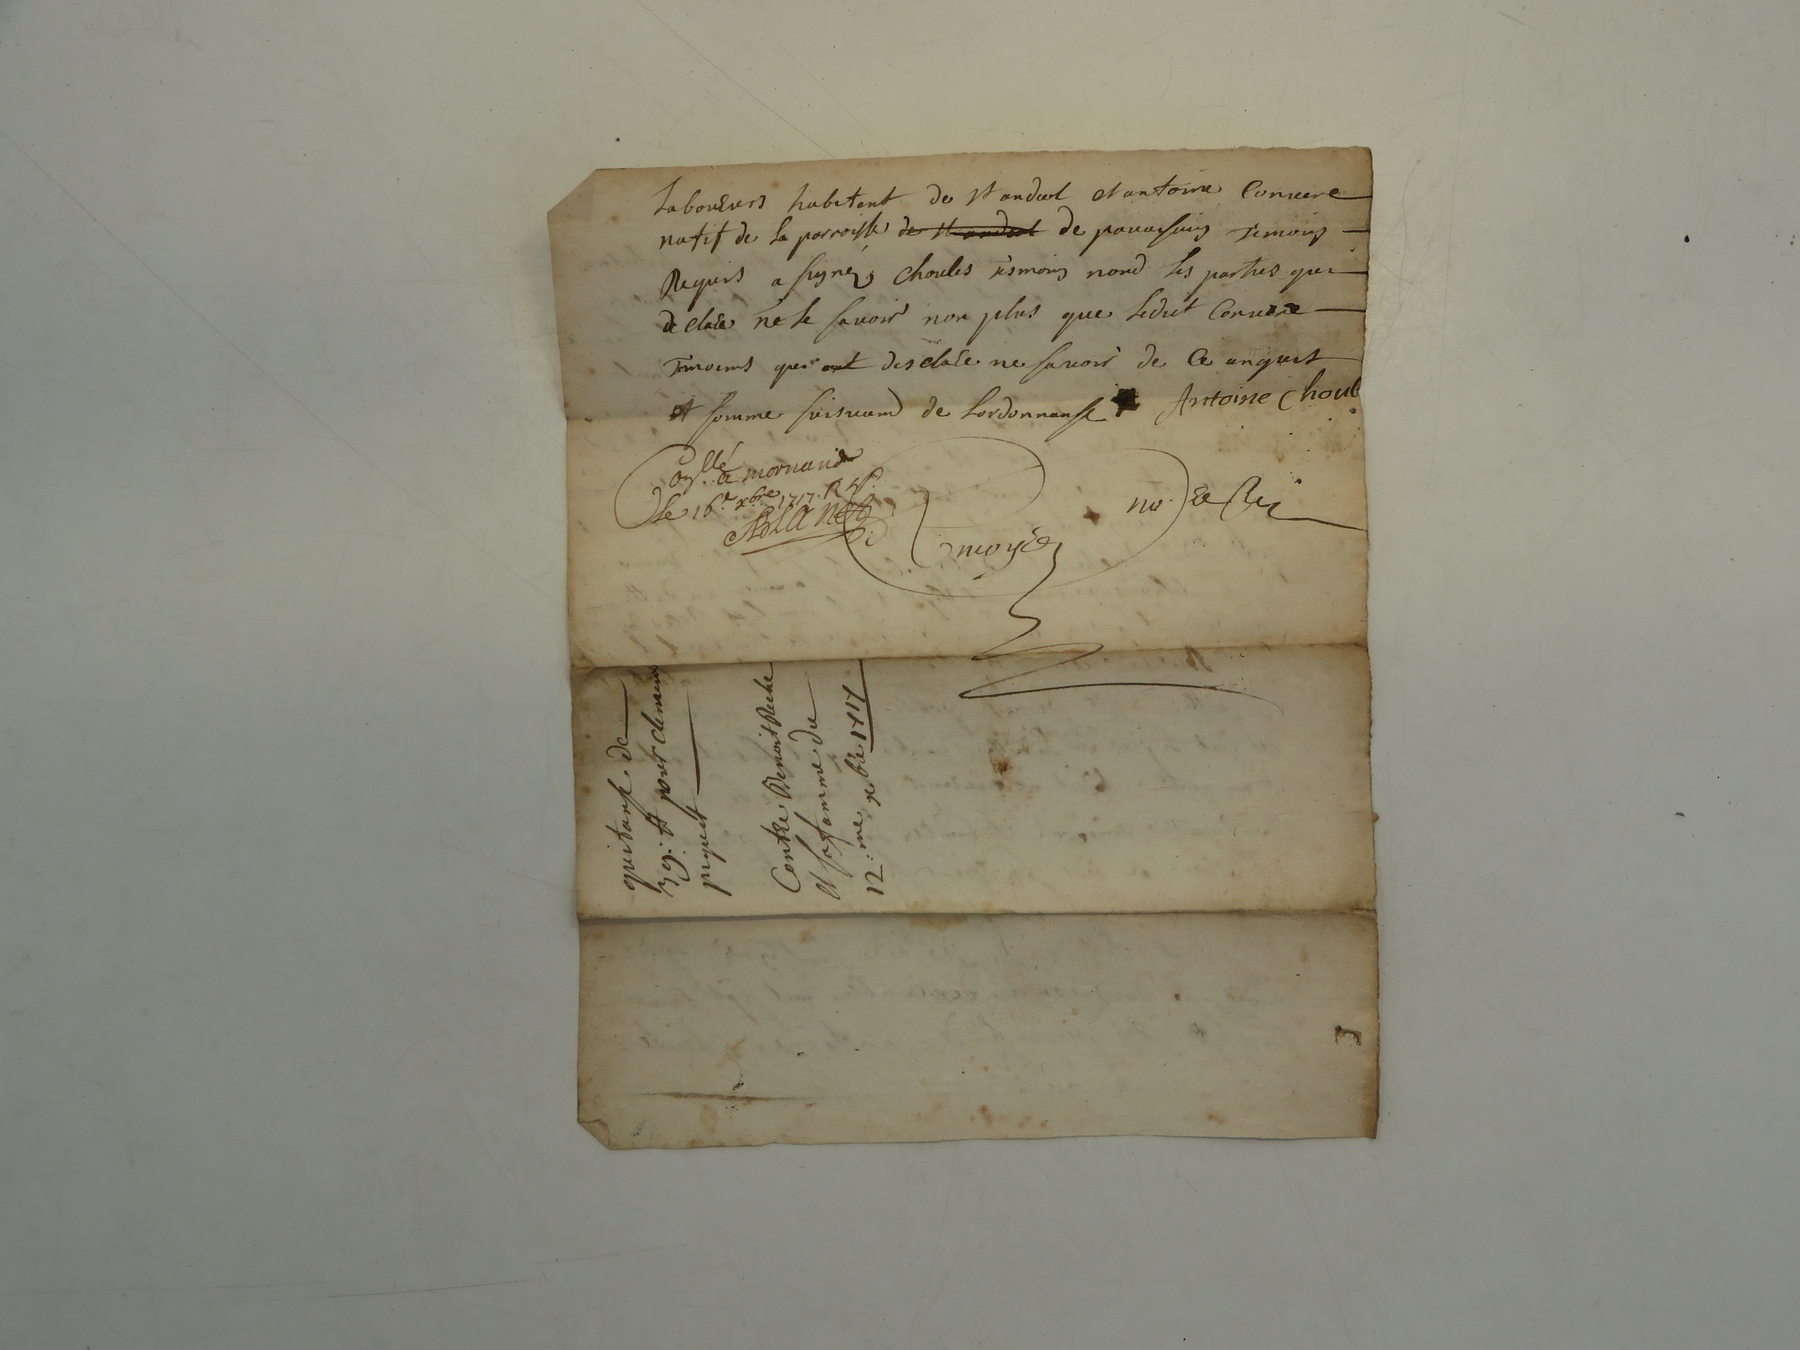 laboureurs habitent de st andeol et antoine Convere
natif de la parroisse de st andeol de pavaisins temoins
Requis a signez choules temoins nond les parties qui
de clare ne le savoir non plus que ledit Convere
temoins qui ont desclare ne savoir de Ce anquis
et somme suisvand de lordonnanse Antoine Choul
Coñllé a mornand
le 16e xbre 1717. R
Blanc
moyse no.re Roy
quitanse de
39. tt pour clemend
piquet
Contre Benoit Reche
et sa famme du
12:me xbre 1717